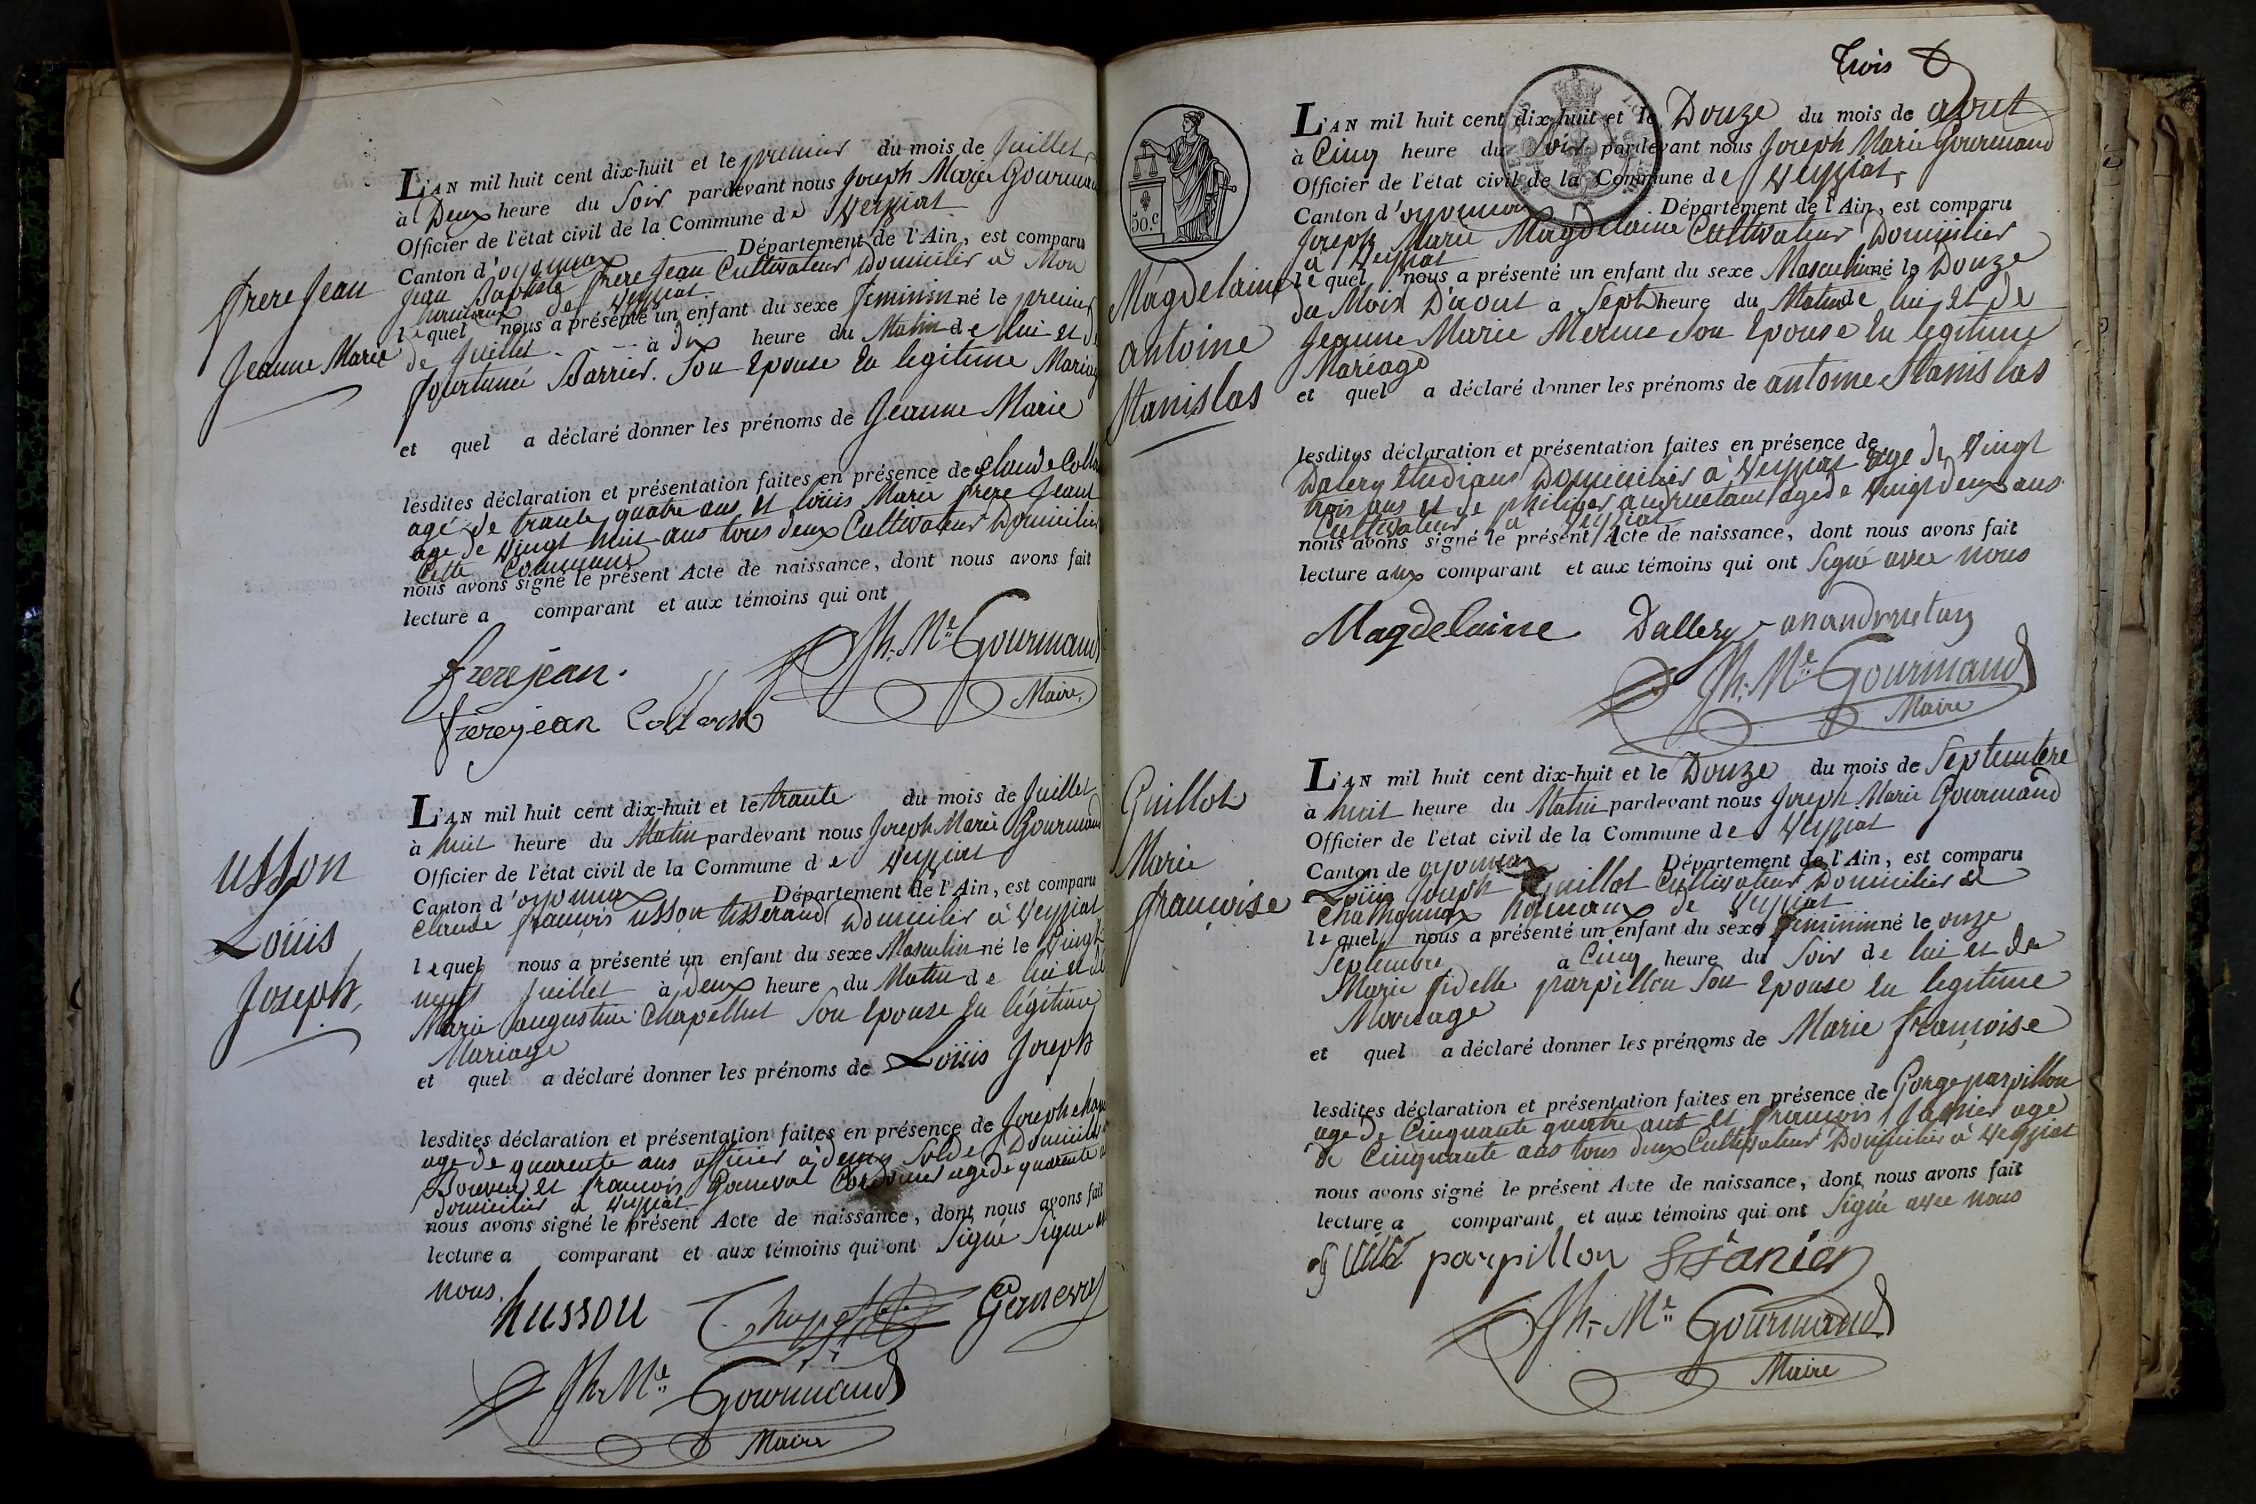 frere Jean
Jeanne Marie
L'AN mil huit cent dix-huit et le premier du mois de Juillet
à Deux heure du Soir pardevant nous Joseph Marie Gourmand
Officier de l'état civil de la Commune de Veyziat
Canton d'oyonnax Département de l'Ain, est comparu
Jean Baptiste frere Jean Cultivateur Domicilié à Mon
hameaux de Veyziat
lequel nous a présenté un enfant du sexe feminin né le premier
de Juillet à dix heure du Matin de lui et de
fourtunée Barrier. Son Epouse En legitime Mariage
et quel a déclaré donner les prénoms de Jeanne Marie
lesdites déclaration et présentation faites en présence de Claude
agé de trante quatre ans et Loüis Marie frere Jean
age de Vingt huit ans tous deux Cultivateur Domicilié
Cette Commune
nous avons signé le présent Acte de naissance, dont nous avons fait
lecture a comparant et aux témoins qui ont
frerejean.
Jh. Me. Gourmand
Maire
frerejean
Usson
Loüis
Joseph
L'AN mil huit cent dix-huit et le trante du mois de Juillet
à huit heure du Matin pardevant nous Joseph Marie Gourmand
Officier de l'état civil de la Commune de Veyziat
Canton d'oyonnax Département de l'Ain, est comparu
Claude françois usson tisserand Domicilié à Veyziat
lequel nous a présenté un enfant du sexe Masculin né le Vingt
neuf Juillet à deux heure du Matin de lui et de
Marie augustine Chapellut Son Epouse En légitime
Mariage
et quel a déclaré donner les prénoms de Loüis Joseph
lesdites déclaration et présentation faites en présence de Joseph
age de quarente ans officier à demy Solde Domicilié
Bouvent et francois Ganeval Cordonier age de quarente
domicilié a Veyziat
nous avons signé le présent Acte de naissance, dont nous avons fait
lecture a comparant et aux témoins qui ont Signé Signe
nous.
hussou
Ganeval
Jh. Me. Gourmand
Maire
Trois
50.c
Magdelaine
antoine
Stanislas
L'AN mil huit cent dix-huit et le Douze du mois de aout
à Cinq heure du Soir pardevant nous Joseph Marie Gourmand
Officier de l'état civil de la Commune de Veyziat,
Canton d'oyonnax Département de l'Ain, est comparu
Joseph Marie Magdelaine Cultivateur Domicilier
à Veyziat
lequel nous a présenté un enfant du sexe Masculin né le Douze
du Mois D'aout a Sept heure du Matin de lui et de
Jeanne Marie Mermet Son Epouse En legitime
Mariage
et quel a déclaré donner les prénoms de antoine Stanislas
lesdites déclaration et présentation faites en présence de
Dalery Etudiant Domicilier à Veyziat age de Vingt
trois ans et de philiper age de Vingt deux ans
Cultivateur a Veyziat
nous avons signé le présent Acte de naissance, dont nous avons fait
lecture aux comparant et aux témoins qui ont Signé avec nous
Magdelaine Dallery
Jh. Me. Gourmand
Maire
Guillot
Marie
françoise
L'AN mil huit cent dix-huit et le Douze du mois de Septembre
à huit heure du Matin pardevant nous Joseph Marie Gourmand
Officier de l'état civil de la Commune de Veyziat
Canton de oyonnax Département de l'Ain, est comparu
Loüis Joseph Guillot Cultivateur Domicilier à
hameaux de Veyziat
lequel nous a présenté un enfant du sexe feminin né le onze
Septembre à Cinq heure du Soir de lui et de
Marie fidelle parpillon Son Epouse En legitime
Mariage
et quel a déclaré donner les prénoms de Marie françoise
lesdites déclaration et présentation faites en présence de Gorge parpillon
age de Cinquante quatre ans et francois Janier age
de Cinquante ans tous deux Cultivateur Domicilier à Veyziat
nous avons signé le présent Acte de naissance, dont nous avons fait
lecture a comparant et aux témoins qui ont Signé avec nous
parpillon Janier
Jh. Me. Gourmand
Maire